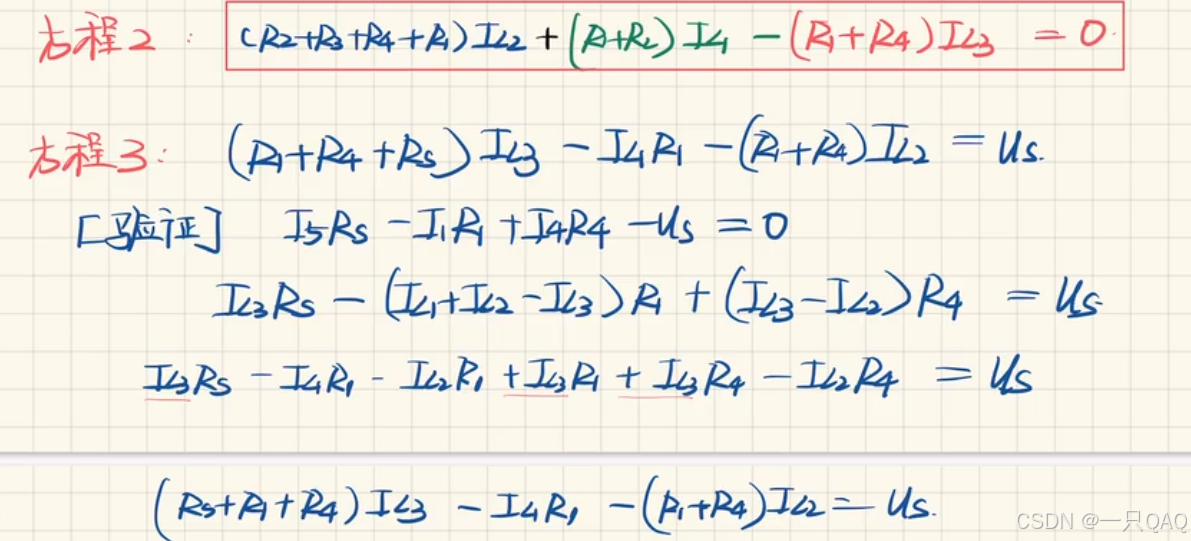 方程2: (R2+R3+R4+R1)IL2+(R1+R2)IL1-(R1+R4)IL3=0
方程3: (R1+R4+R5)IL3-IL1R1-(R1+R4)IL2=Us.
[验证] I5R5-I1R1+I4R4-Us=0
IL3R5-(IL1+IL2-IL3)R1+(IL3-IL2)R4=Us
IL3R5-IL1R1-IL2R1+IL3R1+IL3R4-IL2R4=Us
(R5+R1+R4)IL3-IL1R1-(R1+R4)IL2=Us.
CSDN @一只QAQ